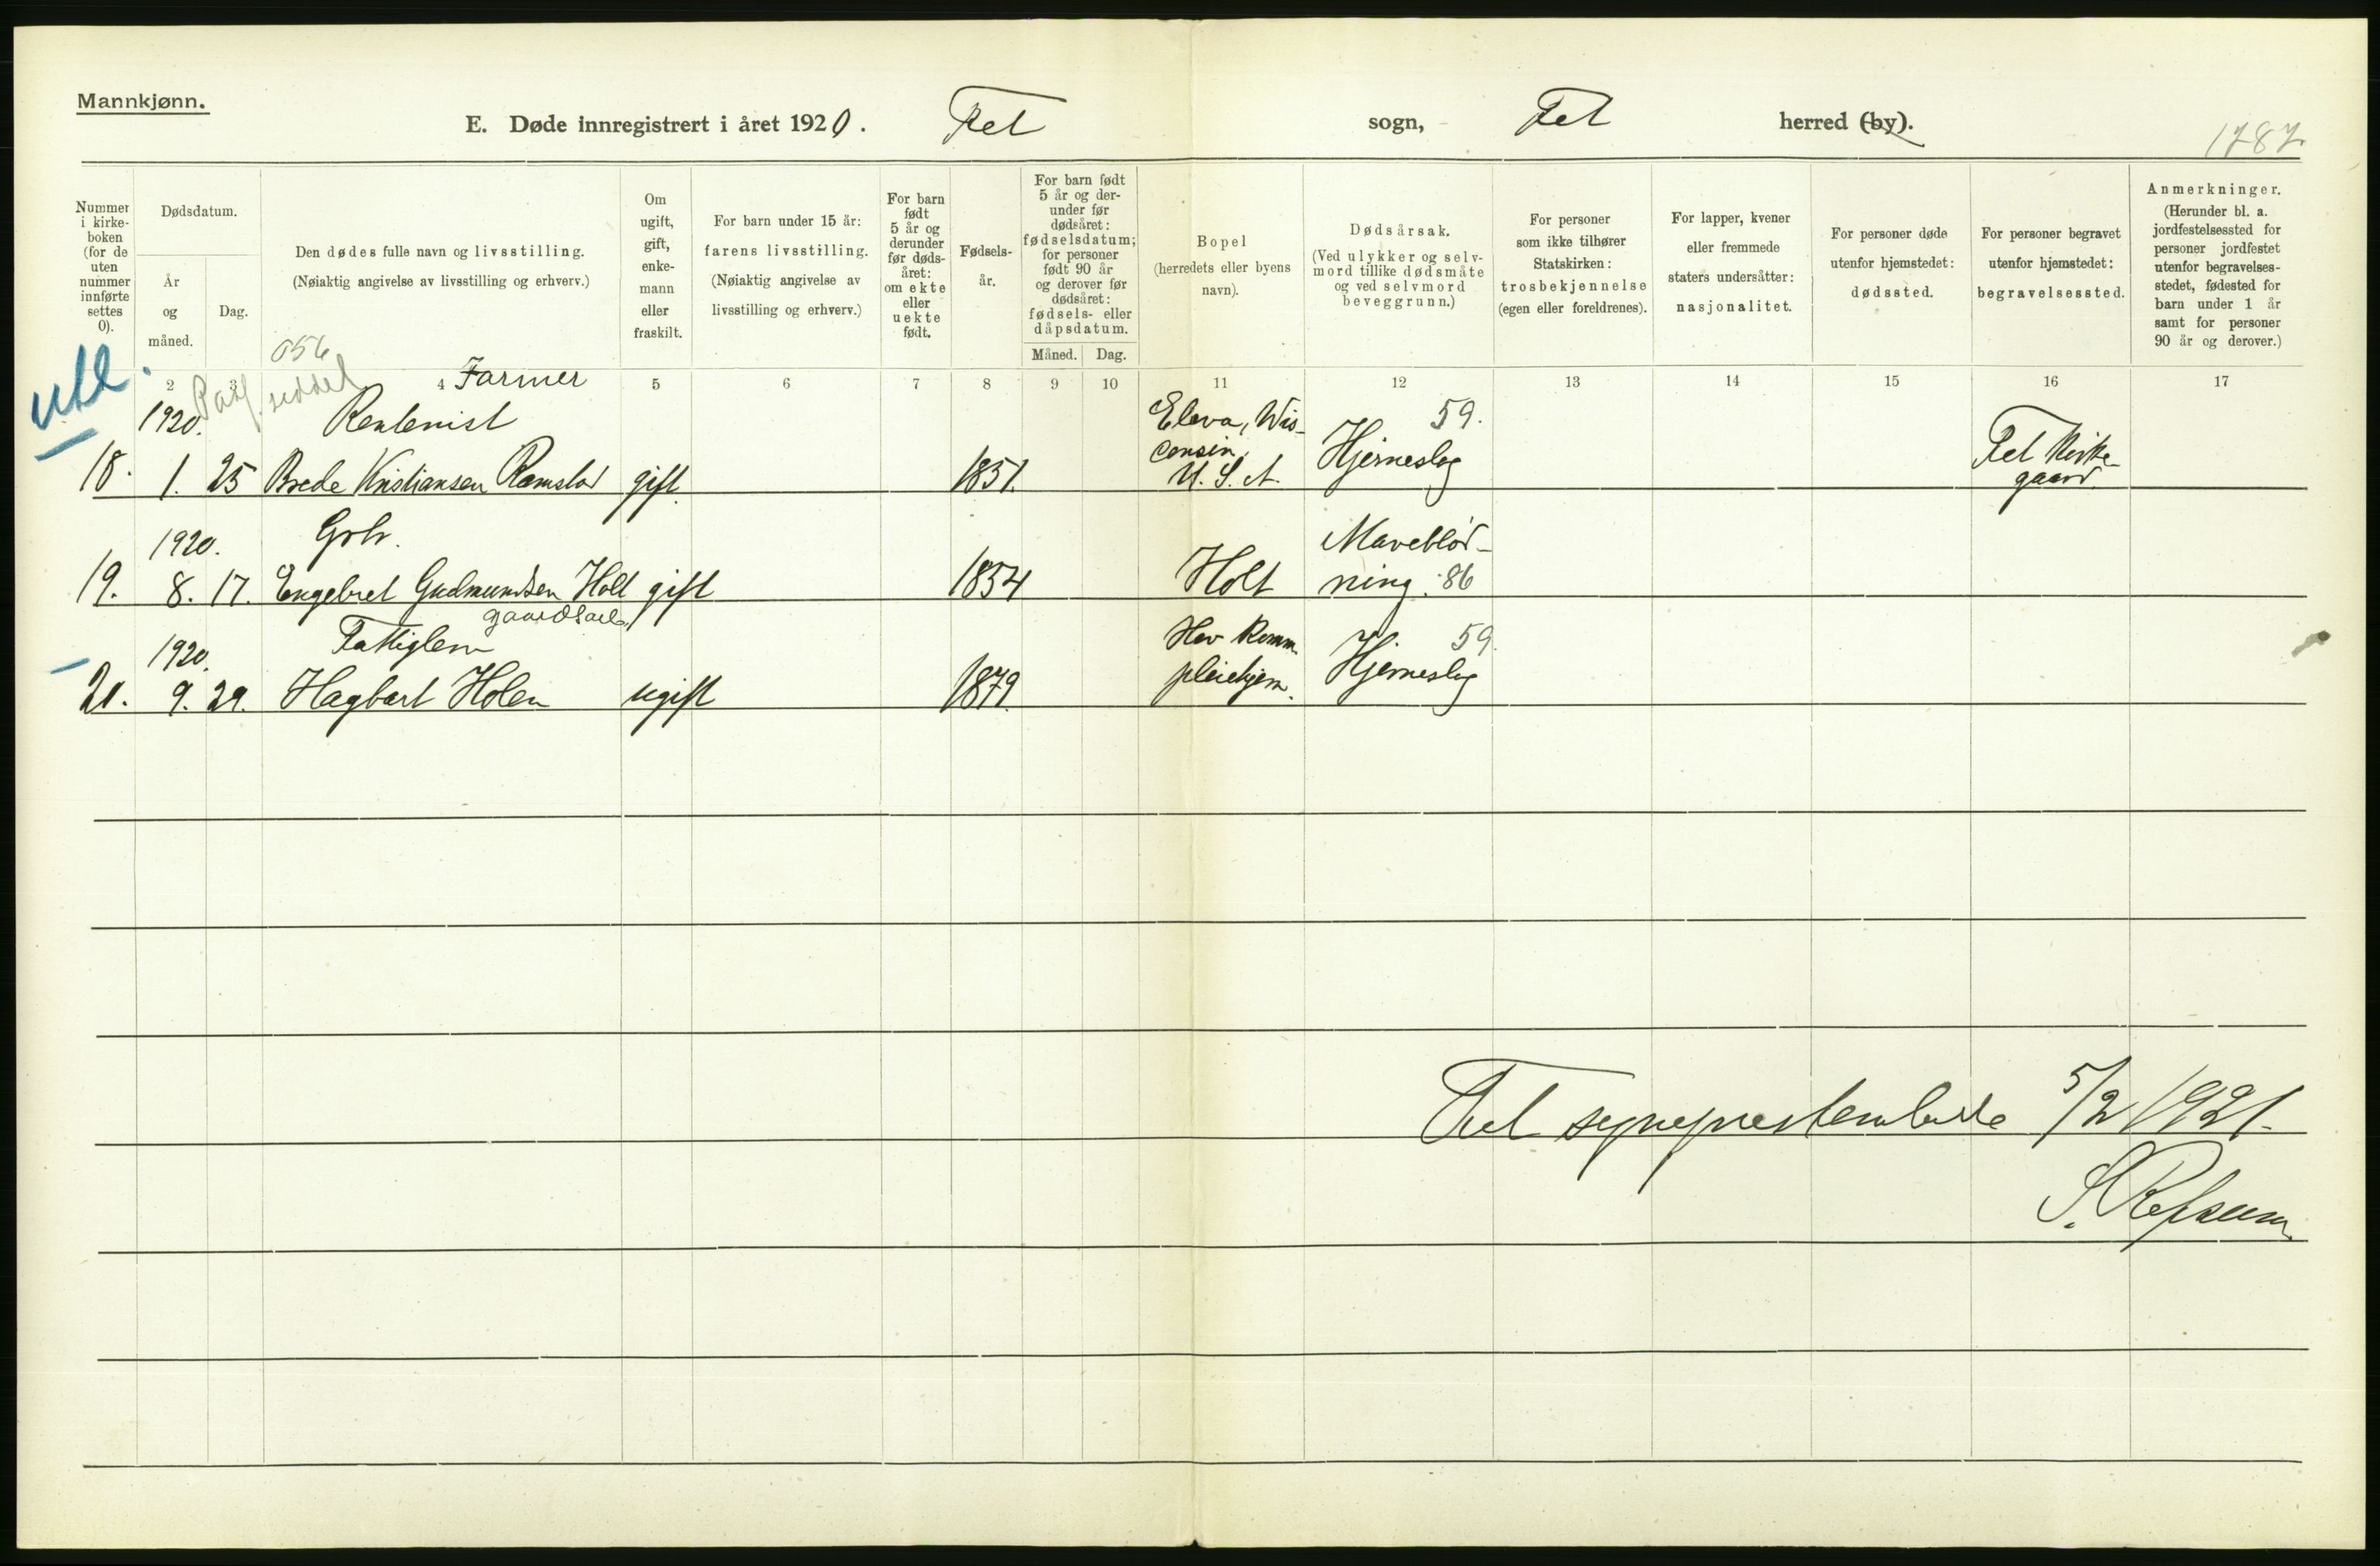 Mannkjønn.
E. Døde innregistrert i året 1920. Fet sogn, Fet herred (by).
1787.
Nummer
i kirke-
boken
(for de
uten
nummer
innførte
settes
0).
Dødsdatum.
År
og
måned.
Dag.
Den dødes fulle navn og livsstilling.
(Nøiaktig angivelse av livsstilling og erhverv.)
Om
ugift,
gift,
enke-
mann
eller
fraskilt.
For barn under 15 år:
farens livsstilling.
(Nøiaktig angivelse av
livsstilling og erhverv.)
For barn
født
5 år og
derunder
før døds-
året:
om ekte
eller
uekte
født.
Fødsels-
år.
For barn født
5 år og der-
under før
dødsåret:
fødselsdatum;
for personer
født 90 år
og derover før
dødsåret:
fødsels- eller
dåpsdatum.
Måned. Dag.
Bopel
(herredets eller byens
navn).
Dødsårsak.
(Ved ulykker og selv-
mord tillike dødsmåte
og ved selvmord
beveggrunn.)
For personer
som ikke tilhører
Statskirken:
trosbekjennelse
(egen eller foreldrenes).
For lapper, kvener
eller fremmede
staters undersåtter:
nasjonalitet.
For personer døde
utenfor hjemstedet:
dødssted.
For personer begravet
utenfor hjemstedet:
begravelsessted.
Anmerkninger.
(Herunder bl. a.
jordfestelsessted for
personer jordfestet
utenfor begravelses-
stedet, fødested for
barn under 1 år
samt for personer
90 år og derover.)
056
utl.
2 3 4 Farmer 5 6 7 8 9 10 11 12 13 14 15 16 17
seddel
1920. Rentenist Eleva, Wis- 59.
consin,
18. 1. 25 Brede Kristiansen Ramstad gift 1851. U. S. A. Hjerneslag Fet Kirke-
gaard.
1920. Grbr. Maveblød-
19. 8. 17. Engebret Gudmundsen Holt gift 1854 Holt ning. 86
gaardsarb.
1920. Fattiglem Hov Komm. 59.
21. 9. 29. Hagbart Holen ugift 1879. pleiehjem. Hjerneslag
Fet sogneprestembede 5/2 1921.
S. Refsum